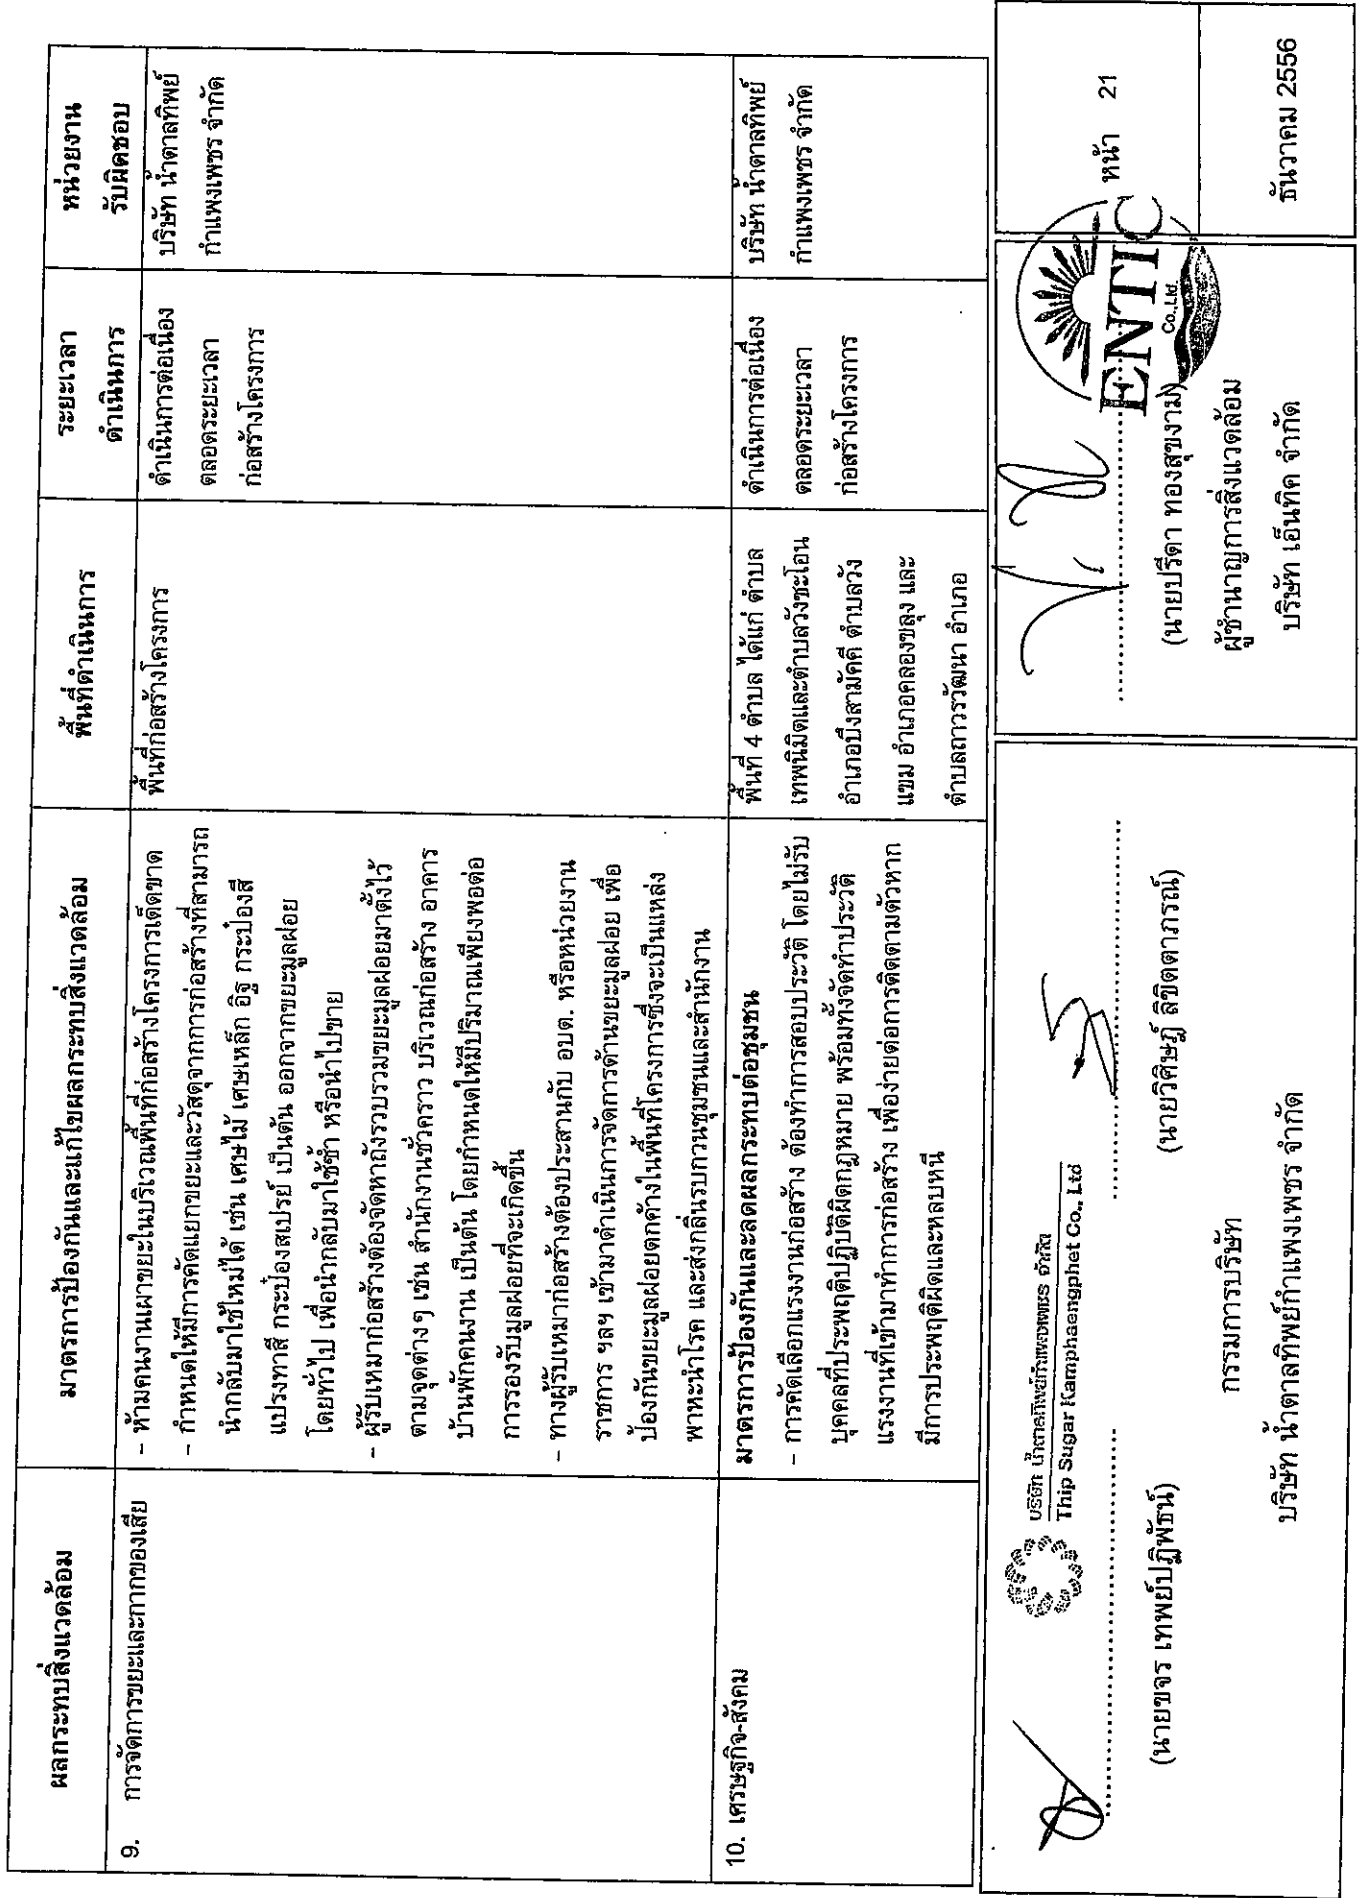 ผลกระทบสิ่งแวดล้อม
มาตรการป้องกันและแก้ไขผลกระทบสิ่งแวดล้อม
พื้นที่ดำเนินการ
ระยะเวลา
ดำเนินการ
หน่วยงาน
รับผิดชอบ
9. การจัดการขยะและกากของเสีย
- ห้ามคนงานเผาขยะในบริเวณพื้นที่ก่อสร้างโครงการเด็ดขาด
- กำหนดให้มีการคัดแยกขยะและวัสดุจากการก่อสร้างที่สามารถ
นำกลับมาใช้ใหม่ได้ เช่น เศษไม้ เศษเหล็ก อิฐ กระป๋องสี
แปรงทาสี กระป๋องสเปรย์ เป็นต้น ออกจากขยะมูลฝอย
โดยทั่วไป เพื่อนำกลับมาใช้ซ้ำ หรือนำไปขาย
- ผู้รับเหมาก่อสร้างต้องจัดหาถังรวบรวมขยะมูลฝอยมาตั้งไว้
ตามจุดต่างๆ เช่น สำนักงานชั่วคราว บริเวณก่อสร้าง อาคาร
บ้านพักคนงาน เป็นต้น โดยกำหนดให้มีปริมาณเพียงพอต่อ
การรองรับมูลฝอยที่จะเกิดขึ้น
- ทางผู้รับเหมาก่อสร้างต้องประสานกับ อบต. หรือหน่วยงาน
ราชการ ฯลฯ เข้ามาดำเนินการจัดการด้านขยะมูลฝอย เพื่อ
ป้องกันขยะมูลฝอยตกค้างในพื้นที่โครงการซึ่งจะเป็นแหล่ง
พาหะนำโรค และส่งกลิ่นรบกวนชุมชนและสำนักงาน
พื้นที่ก่อสร้างโครงการ
ดำเนินการต่อเนื่อง
ตลอดระยะเวลา
ก่อสร้างโครงการ
บริษัท น้ำตาลทิพย์
กำแพงเพชร จำกัด
10. เศรษฐกิจ-สังคม
มาตรการป้องกันและลดผลกระทบต่อชุมชน
- การคัดเลือกแรงงานก่อสร้าง ต้องทำการสอบประวัติ โดยไม่รับ
บุคคลที่ประพฤติปฏิบัติผิดกฎหมาย พร้อมทั้งจัดทำประวัติ
แรงงานที่เข้ามาทำการก่อสร้าง เพื่อง่ายต่อการติดตามตัวหาก
มีการประพฤติผิดและหลบหนี
พื้นที่ 4 ตำบล ได้แก่ ตำบล
เทพนิมิตและตำบลวังชะโอน
อำเภอบึงสามัคคี ตำบลวัง
แขม อำเภอคลองขลุง และ
ตำบลถาวรวัฒนา อำเภอ
ดำเนินการต่อเนื่อง
ตลอดระยะเวลา
ก่อสร้างโครงการ
บริษัท น้ำตาลทิพย์
กำแพงเพชร จำกัด
บริษัท น้ำตาลทิพย์กำแพงเพชร จำกัด
Thip Sugar Kamphaengphet Co., Ltd
(นายขจร เทพย์ปฏิพัธน์)
(นายวิศิษฎ์ ลิขิตตาภรณ์)
กรรมการบริษัท
บริษัท น้ำตาลทิพย์กำแพงเพชร จำกัด
(นายปรีดา ทองสุขงาม)
ผู้ชำนาญการสิ่งแวดล้อม
บริษัท เอ็นทิค จำกัด
ENTIC
Co.,Ltd.
หน้า 21
ธันวาคม 2556